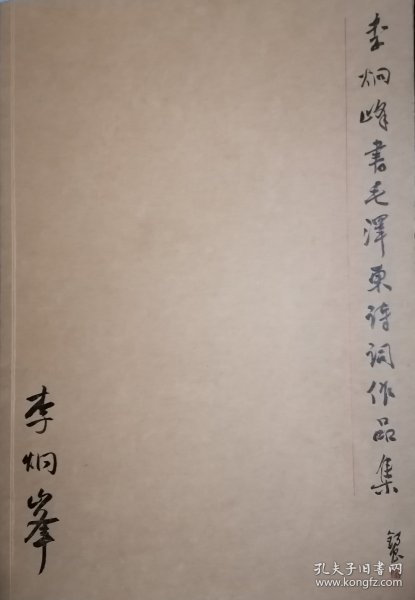 李炯峰書毛澤東詩詞作品集
李炯峯
孔夫子旧书网
www.kongfz.com